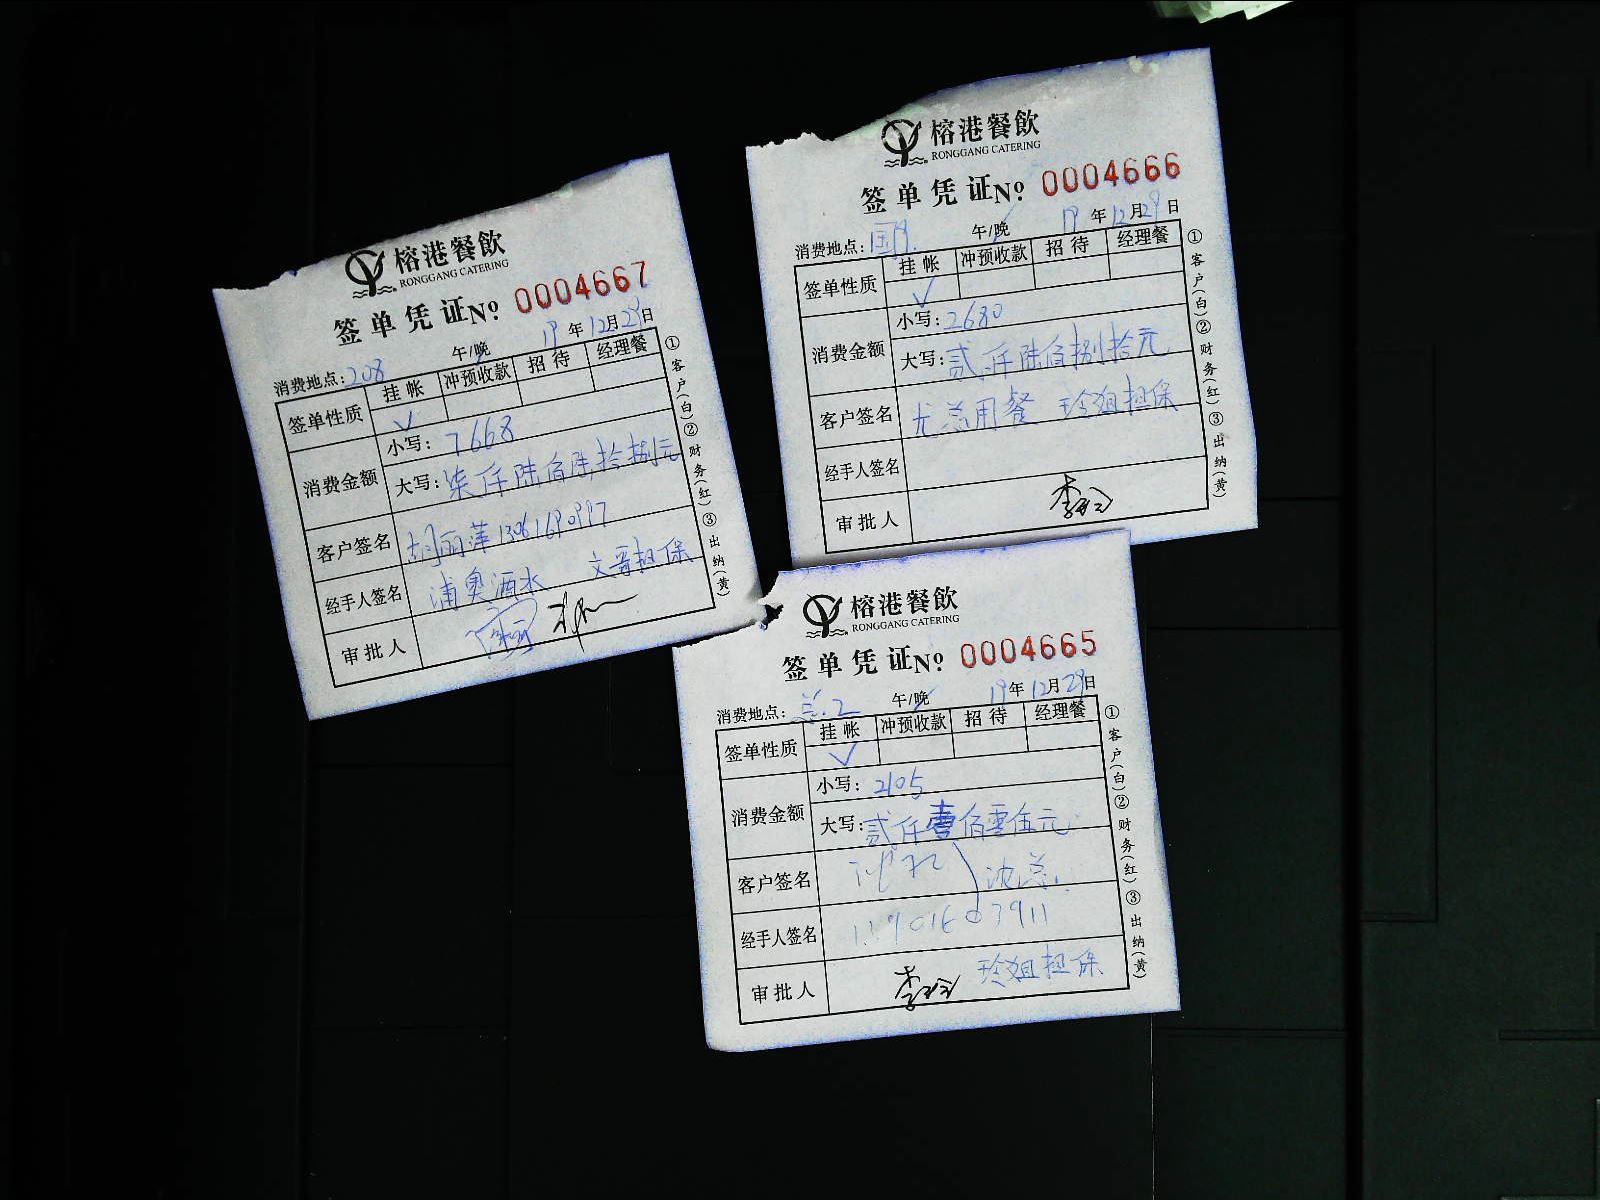 榕港餐飲
RONGGANG CATERING
签单凭证№ 0004667
午/晚 19年12月29日
消费地点:208
签单性质 挂帐 冲预收款 招待 经理餐
✓
消费金额 小写:7668
大写:柒仟陆佰陆拾捌元
客户签名 胡丽萍
经手人签名 浦奥酒水 文哥担保
审批人
①客户(白)②财务(红)③出纳(黄)
榕港餐飲
RONGGANG CATERING
签单凭证№ 0004666
午/晚 19年12月29日
消费地点:
签单性质 挂帐 冲预收款 招待 经理餐
✓
消费金额 小写:2680
大写:贰仟陆佰捌拾元
客户签名 尤总用餐 玲姐担保
经手人签名
审批人
①客户(白)②财务(红)③出纳(黄)
榕港餐飲
RONGGANG CATERING
签单凭证№ 0004665
午/晚 19年12月29日
消费地点:
签单性质 挂帐 冲预收款 招待 经理餐
✓
消费金额 小写:2105
大写:贰仟壹佰零伍元
客户签名 沈总
经手人签名
审批人 玲姐担保
①客户(白)②财务(红)③出纳(黄)